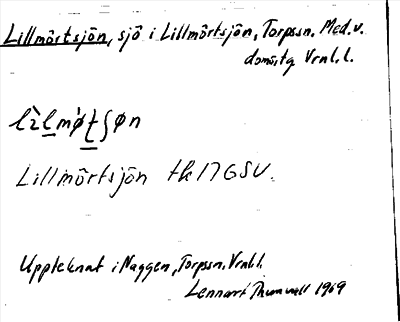 Lillmörtsjön, sjö i Lillmörtsjön, Torpssn. Med. v.
domsrtg Vrnl. l.
Lillmörtsjön tk 17 G SV.
Uppteknat i Naggen, Torpssn. Vrnl. l.
Lennart Thunwall 1969